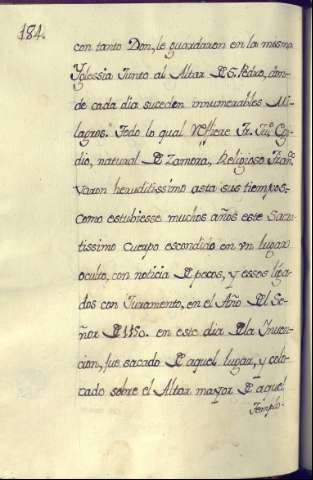 184.
con tanto Don, le guardaron en la misma
Yglessia Junto al Altar D S. Pedro, don-
de cada dia suceden innumerables Mi-
lagros. Todo lo qual Reffiere Fr. Ju.º
dio, natural D Zamora, Religioso Fran.co
varon heruditissimo asta sus tiempos-
como estubiesse muchos años este Sacra-
tissimo cuerpo escondido en vn lugar
oculto, con noticia D pocos, y esses liga-
dos con Juramento, en el Año Del Se-
ñor D 1150. en este dia Dla Inven-
cion, fue sacado D aquel lugar, y colo-
cado sobre el Altar mayor D aquel
Templo.